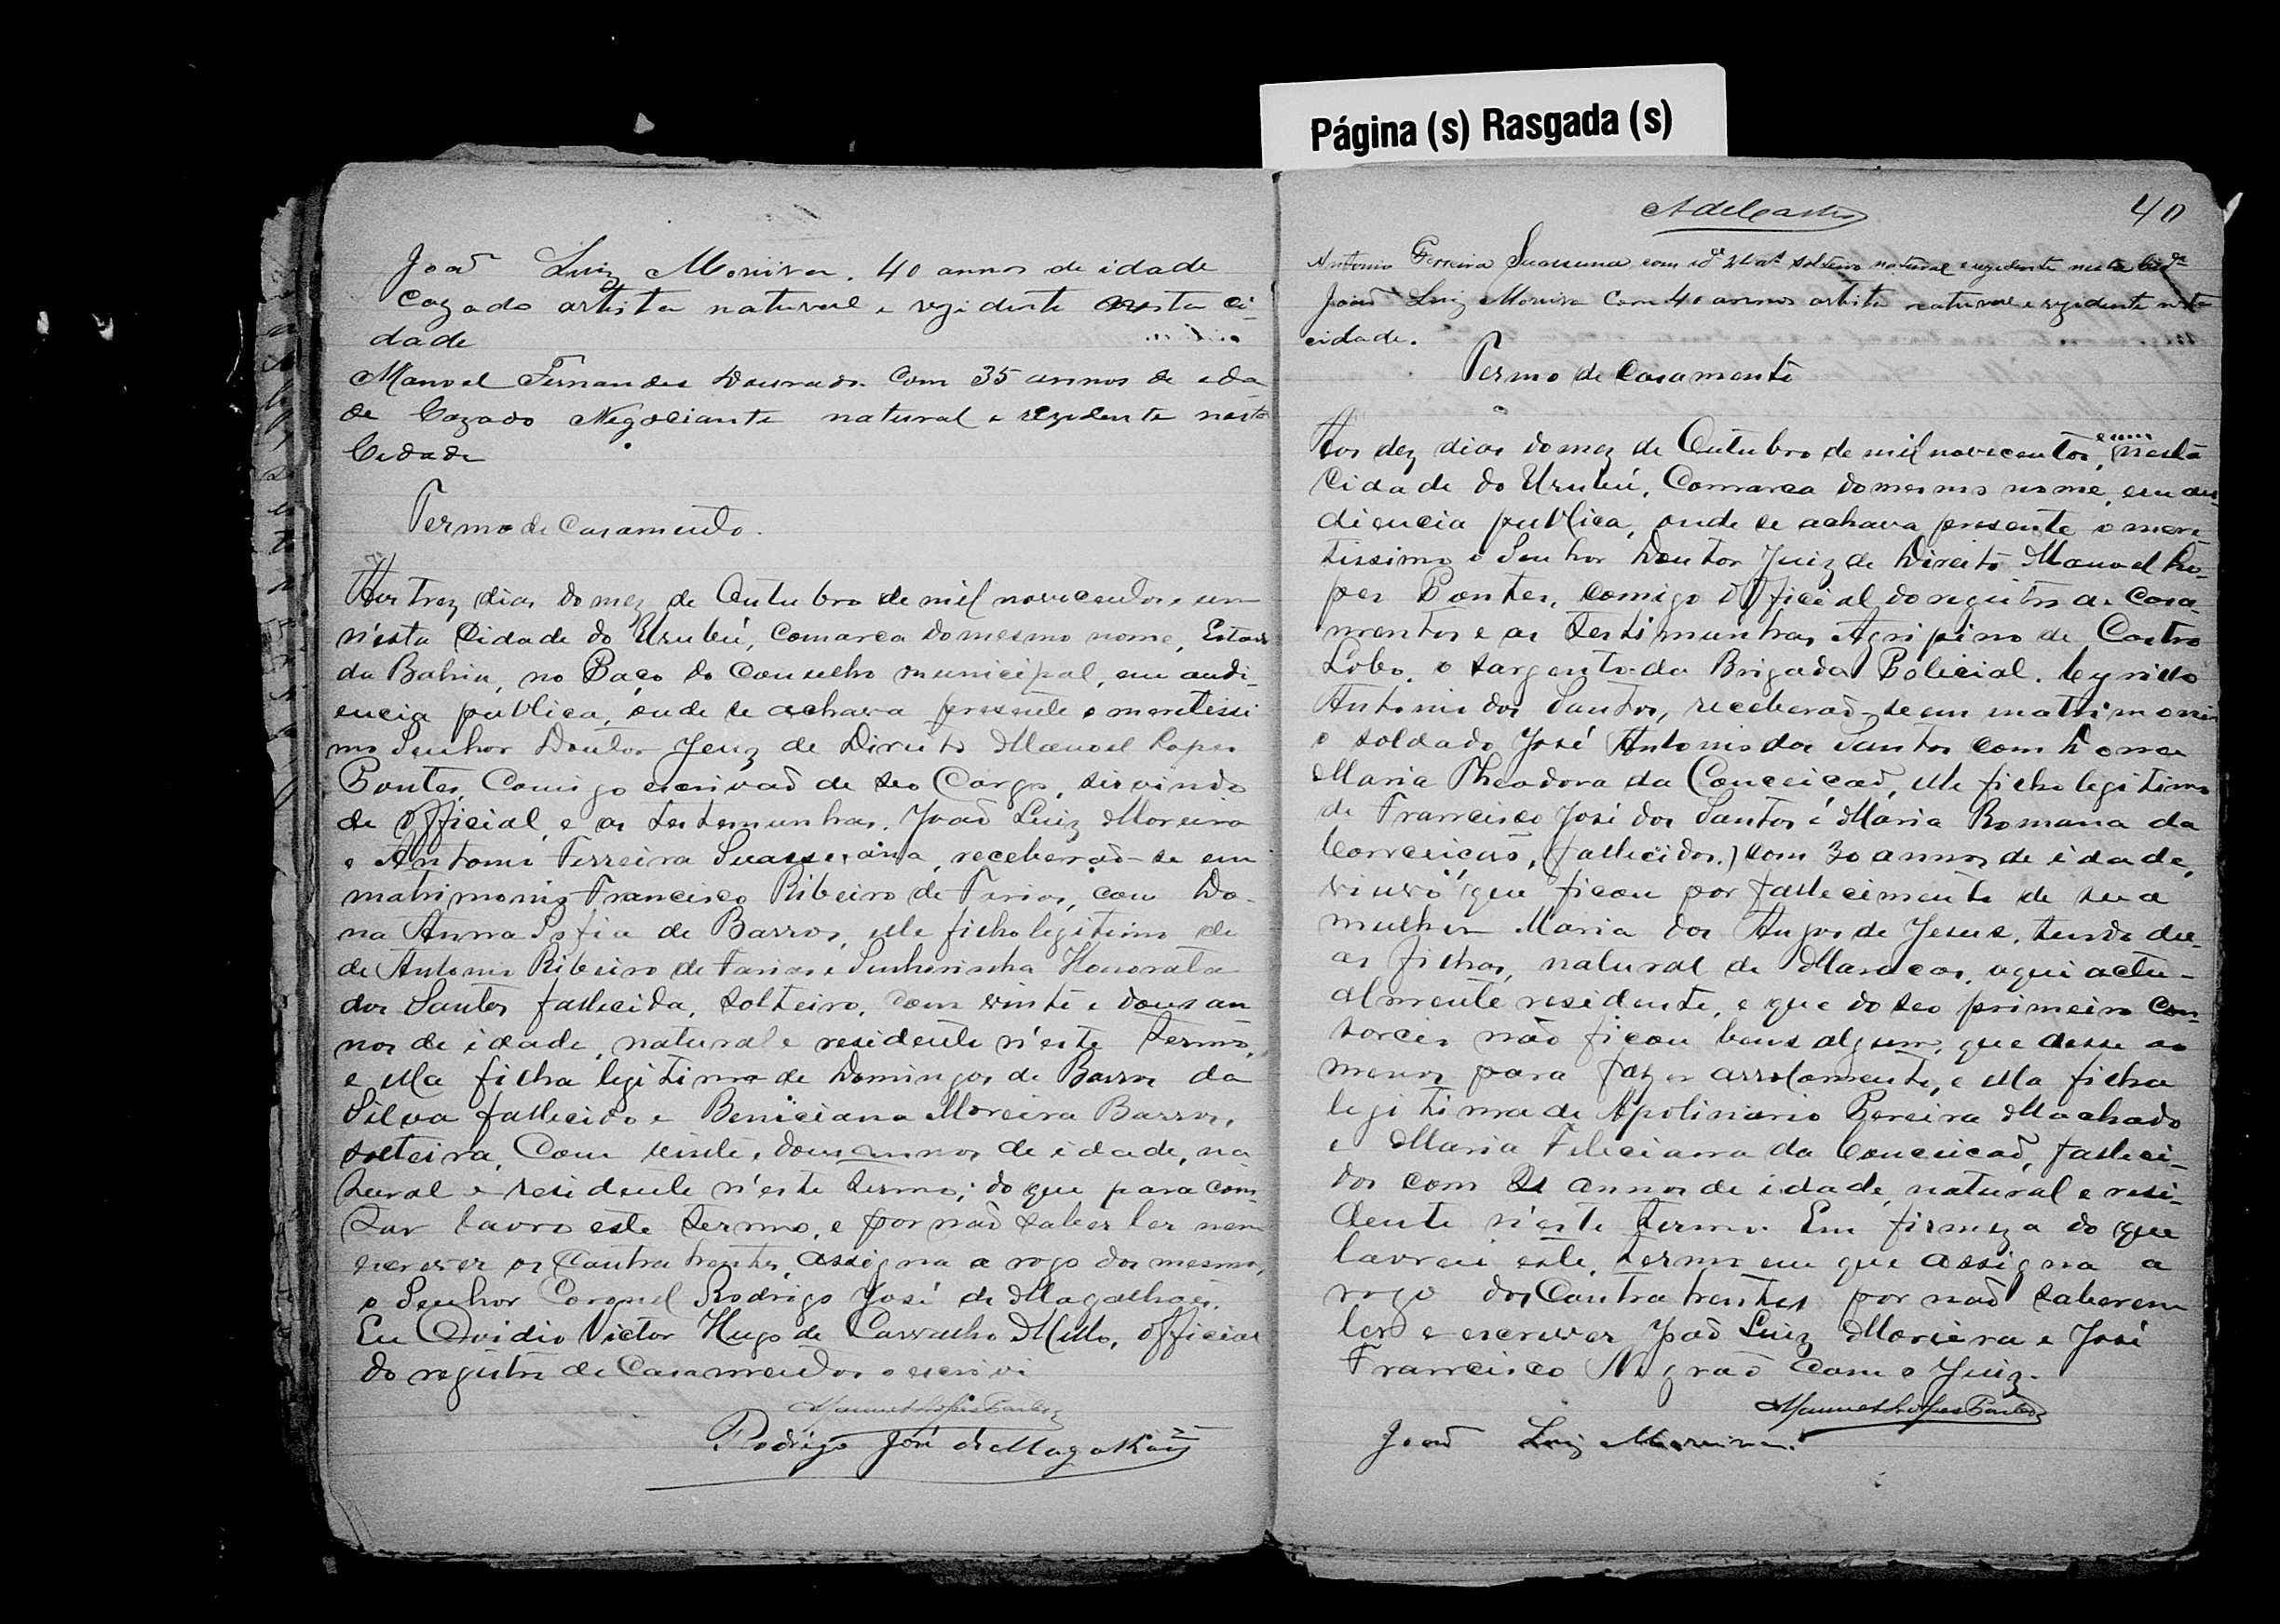 Página (s) Rasgada (s)
João Luiz Moreira. 40 annos de idade
Cazado artista natural e rezidente nesta ci-
dade
Manoel Fernandes Dourado. Com 35 annos de ida
de Cazado Negociante natural e rezidente nesta
Cidade
Termo de Casamento.
Aos trez dias do mez de Outubro de mil novecentos e um
n'esta Cidade do Urubú, Comarca do mesmo nome, Estado
da Bahia, no Paço do Conselho municipal, em audi-
encia publica, onde se achava presente o meretissi
mo Senhor Doutor Juiz de Direito Manoel Lopes
Pontes, Comigo escrivaõ de seo Cargo, servindo
de Official, e as testemunhas. Joaõ Luiz Moreira
e Antonio Ferreira Suassuana, receberaõ-se em
matrimonio Francisco Ribeiro de Farias, com Do-
na Anna Sofia de Barros, elle filho legitimo de
de Antonio Ribeiro de Farias e Senhorinha Honorata
dos Santos fallecida, solteiro, com vinte e dous an
nos de idade, natural e residente n'este termo,
e ella filha legitima de Domingos de Barros da
Silva fallecido e Beniciana Moreira Barros,
solteira, Com vinte e dous annos de idade, na-
tural e residente n'este termo; do que para cons-
tar lavro este termo, e por naõ saber ler nem
escrever os Contratrentes, assigna a rogo dos mesmos,
o Senhor Coronel Rodrigo José de Magalhaes.
Eu Ovidio Victor Hugo de Carvalho Mello, official
do registro de Casamentos o escrevi
Manuel Lopes Pontes
Rodrigo José de Magalhães
40
Antonio Ferreira Suassuna com id.e solteiro natural e rezidente nesta Cid.e
João Luiz Moreira Com 40 annos artista natural e rezidente nesta
cidade.
Termo de Casamento
e um
Aos dez dias do mez de Outubro de mil novecentos, nesta
Cidade do Urubú, Comarca do mesmo nome, em au-
diencia publica, onde se achava presente o mere-
tissimo o Senhor Doutor Juiz de Direito Manoel Lo-
pes Pontes, comigo Official do registro de Casa-
mentos e as testimunhas Agripino de Castro
Lobo, o sargento da Brigada Policial. Cyrillo
Antonio dos Santos, receberaõ-se em matrimonio
o soldado José Antonio dos Santos com Dona
Maria Theodora da Conceicaõ, elle filho legitimo
de Francisco José dos Santos é Maria Romana da
Conceicaõ, (fallecidos,) com 30 annos de idade,
viuvo que ficou por fallecimento de sua
mulher Maria dos Anjos de Jesus, tendo du-
as filhas, natural de Maracas, aqui actu-
almente residente, e que do seo primeiro Con-
sorcio não ficou bens algum, que desse ao
menos para fazer arrolamento, e ella filha
legitima de Apolinario Pereira Machado
e Maria Feleciana da Conceicaõ, falleci-
dos com 21 annos de idade, natural e resi-
dente n'este termo. Em firmeza do que
lavrei este, termo em que assigna a
rogo dos Contratrentes por naõ saberem
ler e escrever Joaõ Luiz Moreira e José
Francisco Negraõ Com o Juiz.
Manuel Lopes Pontes
João Luiz Moreira.